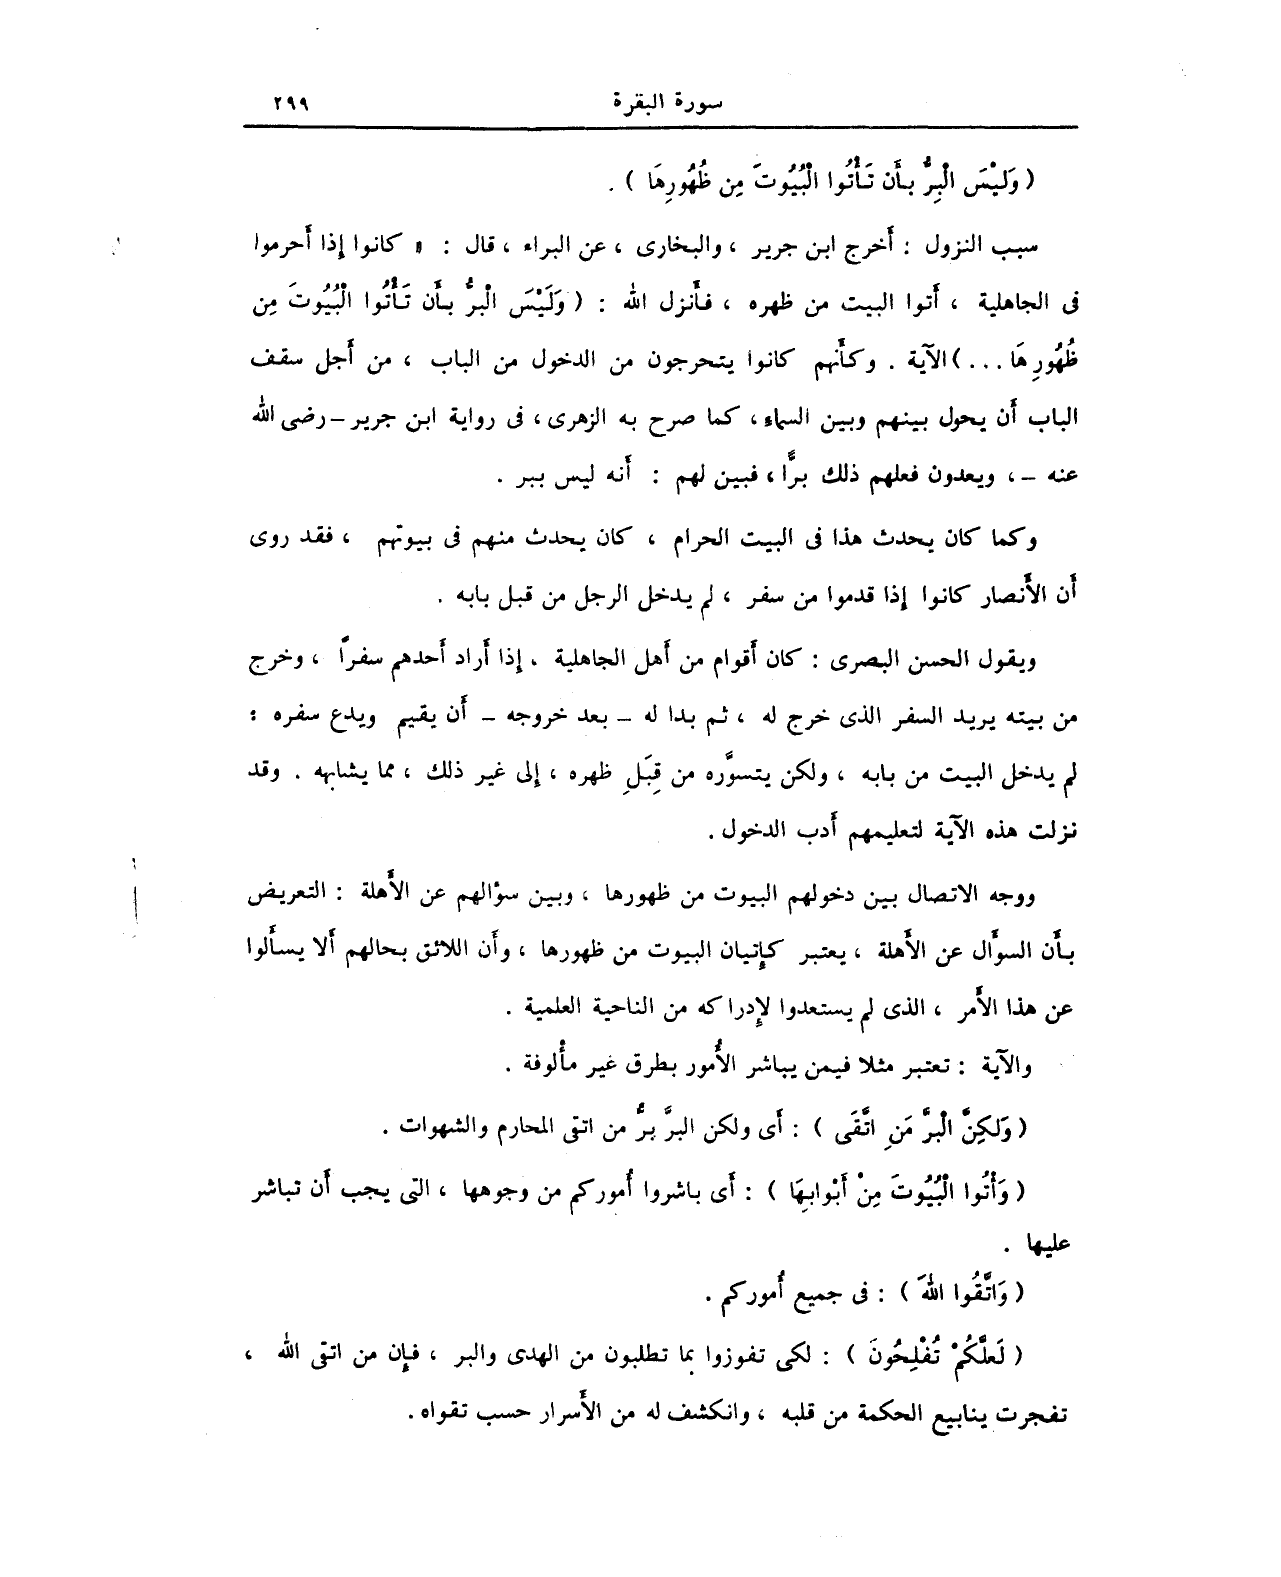 سورة البقرة ٢٩٩
( وَلَيْسَ الْبِرُّ بِأَن تَأْتُوا الْبُيُوتَ مِن ظُهُورِهَا ) .
سبب النزول : أخرج ابن جرير ، والبخارى ، عن البراء ، قال : « كانوا إذا أحرموا
فى الجاهلية ، أتوا البيت من ظهره ، فأنزل الله : ( وَلَيْسَ الْبِرُّ بِأَن تَأْتُوا الْبُيُوتَ مِن
ظُهُورِهَا ... ) الآية . وكأنهم كانوا يتحرجون من الدخول من الباب ، من أجل سقف
الباب أن يحول بينهم وبين السماء ، كما صرح به الزهرى ، فى رواية ابن جرير – رضى الله
عنه – ، ويعدون فعلهم ذلك برًّا ، فبين لهم : أنه ليس ببر .
وكما كان يحدث هذا فى البيت الحرام ، كان يحدث منهم فى بيوتهم ، فقد روى
أن الأنصار كانوا إذا قدموا من سفر ، لم يدخل الرجل من قبل بابه .
ويقول الحسن البصرى : كان أقوام من أهل الجاهلية ، إذا أراد أحدهم سفرًا ، وخرج
من بيته يريد السفر الذى خرج له ، ثم بدا له – بعد خروجه – أن يقيم ويدع سفره :
لم يدخل البيت من بابه ، ولكن يتسوَّره من قِبَلِ ظهره ، إلى غير ذلك ، مما يشابهه . وقد
نزلت هذه الآية لتعليمهم أدب الدخول .
ووجه الاتصال بين دخولهم البيوت من ظهورها ، وبين سؤالهم عن الأهلة : التعريض
بأن السؤال عن الأهلة ، يعتبر كإتيان البيوت من ظهورها ، وأن اللائق بحالهم ألا يسألوا
عن هذا الأمر ، الذى لم يستعدوا لإدراكه من الناحية العلمية .
والآية : تعتبر مثلا فيمن يباشر الأمور بطرق غير مألوفة .
( وَلَكِنَّ الْبِرَّ مَنِ اتَّقَى ) : أى ولكن البرَّ برُّ من اتقى المحارم والشهوات .
( وَأْتُوا الْبُيُوتَ مِنْ أَبْوابِهَا ) : أى باشروا أموركم من وجوهها ، التى يجب أن تباشر
عليها .
( وَاتَّقُوا اللهَ ) : فى جميع أموركم .
( لَعَلَّكُمْ تُفْلِحُونَ ) : لكى تفوزوا بما تطلبون من الهدى والبر ، فإن من اتقى الله ،
تفجرت ينابيع الحكمة من قلبه ، وانكشف له من الأسرار حسب تقواه .